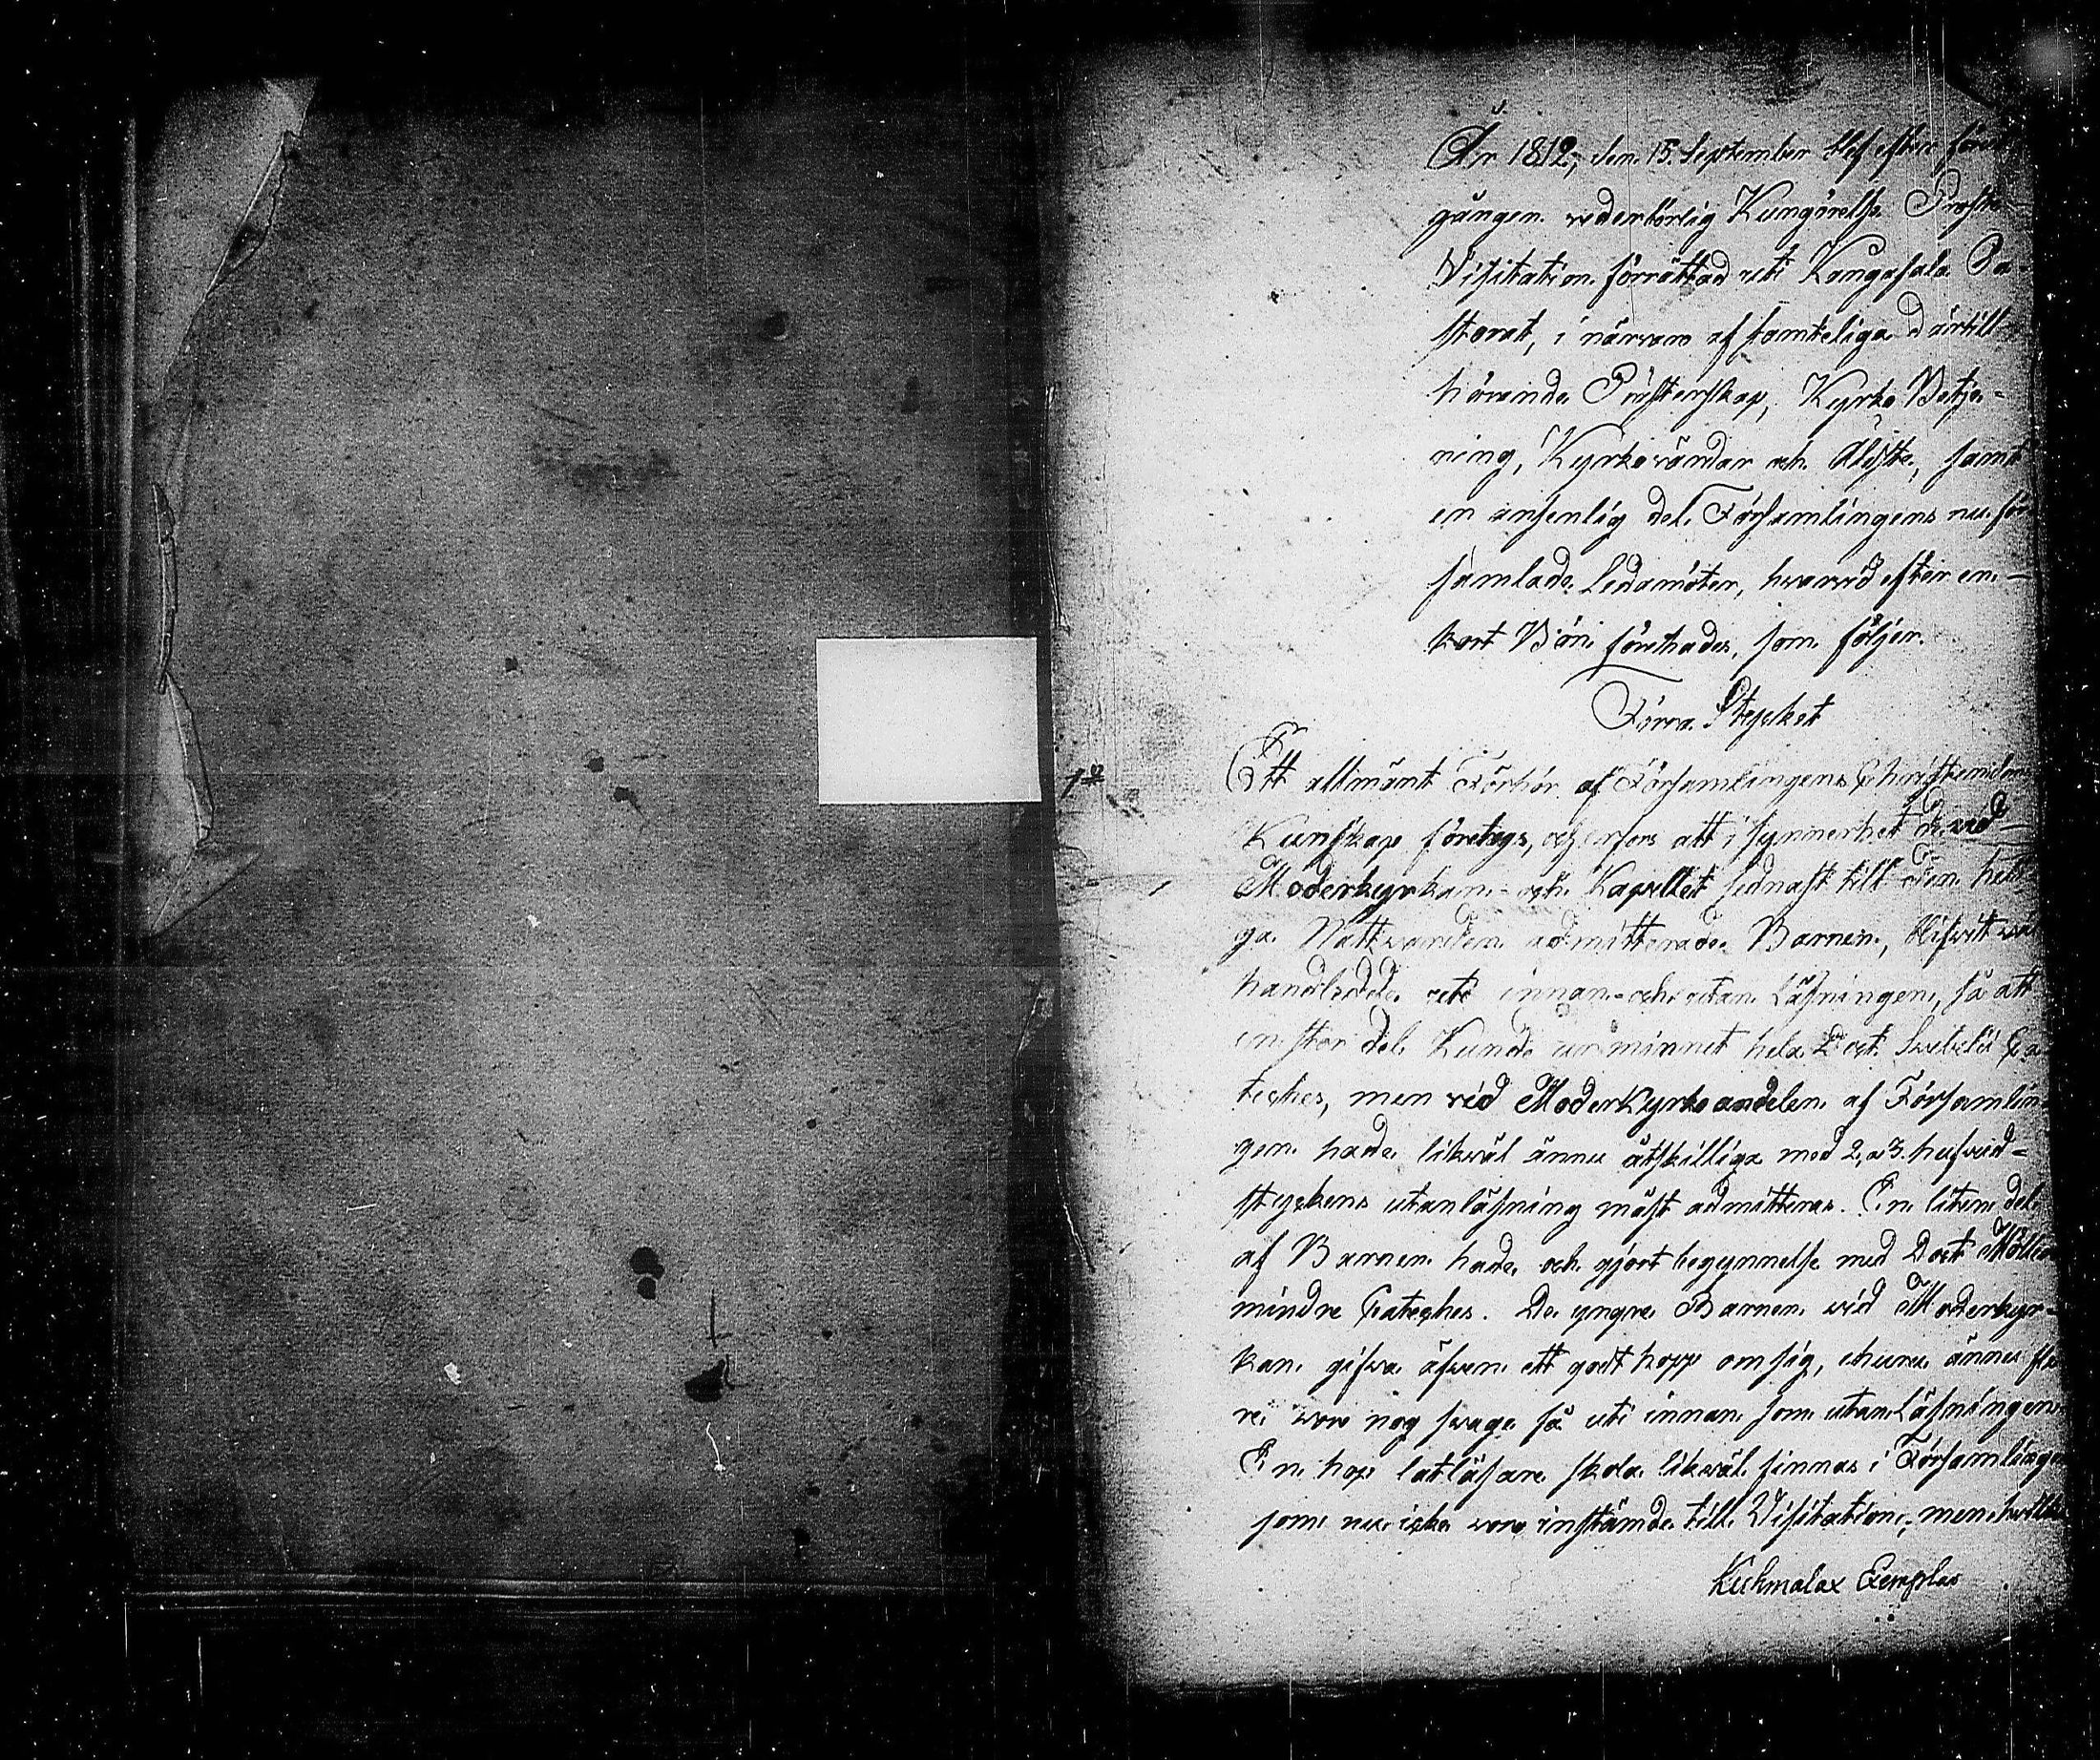 År 1812, den 15 September blef efter före
gången vederbörlig Kungörelse Prosta
Visitation förrättad uti Kangasala Pa-
storat, i närvaro af samteliga därtill
hörande Prästerskap, Kyrko Betje-
ning, Kyrkovärdar och Äldste, samt
en ansenlig del Församlingens nu för
samlade ledamöter, hvarvid efter en
kort Bön förehades, som följer.
Förra Stycket
1º Ett allmänt Förhör af Församlingens Christendoms
Kunskap företogs, och erfors att i synnerhet de vid
Moderkyrkan och Kapellet sednast till den heli
ga Nattvarden admitterade Barnen, blifvit väl
handledde uti innan- och utan Läsningen, så att
en stor del Kunde ur minnet hela Doct. Svebelii Ca
teches, men vid Moderkyrko andelen af Församlin
gen hade likväl ännu åtskillige med 2, a 3 hufvud-
styckens utanläsning måst admitteras. En liten del
af Barnen hade och gjort begynnelse med Doct Möllers
mindre Cateches. De yngre Barnen vid Moderkyr-
kan gifva äfven ett godt hopp om sig, ehuru ännu fle
re voro nog svage så uti innan som utan Läsningen
En hop latläsare skola likväl finnas i Församlingen
som nu icke voro instämde till Visitation, men hvilka
Kuhmalax Exemplar